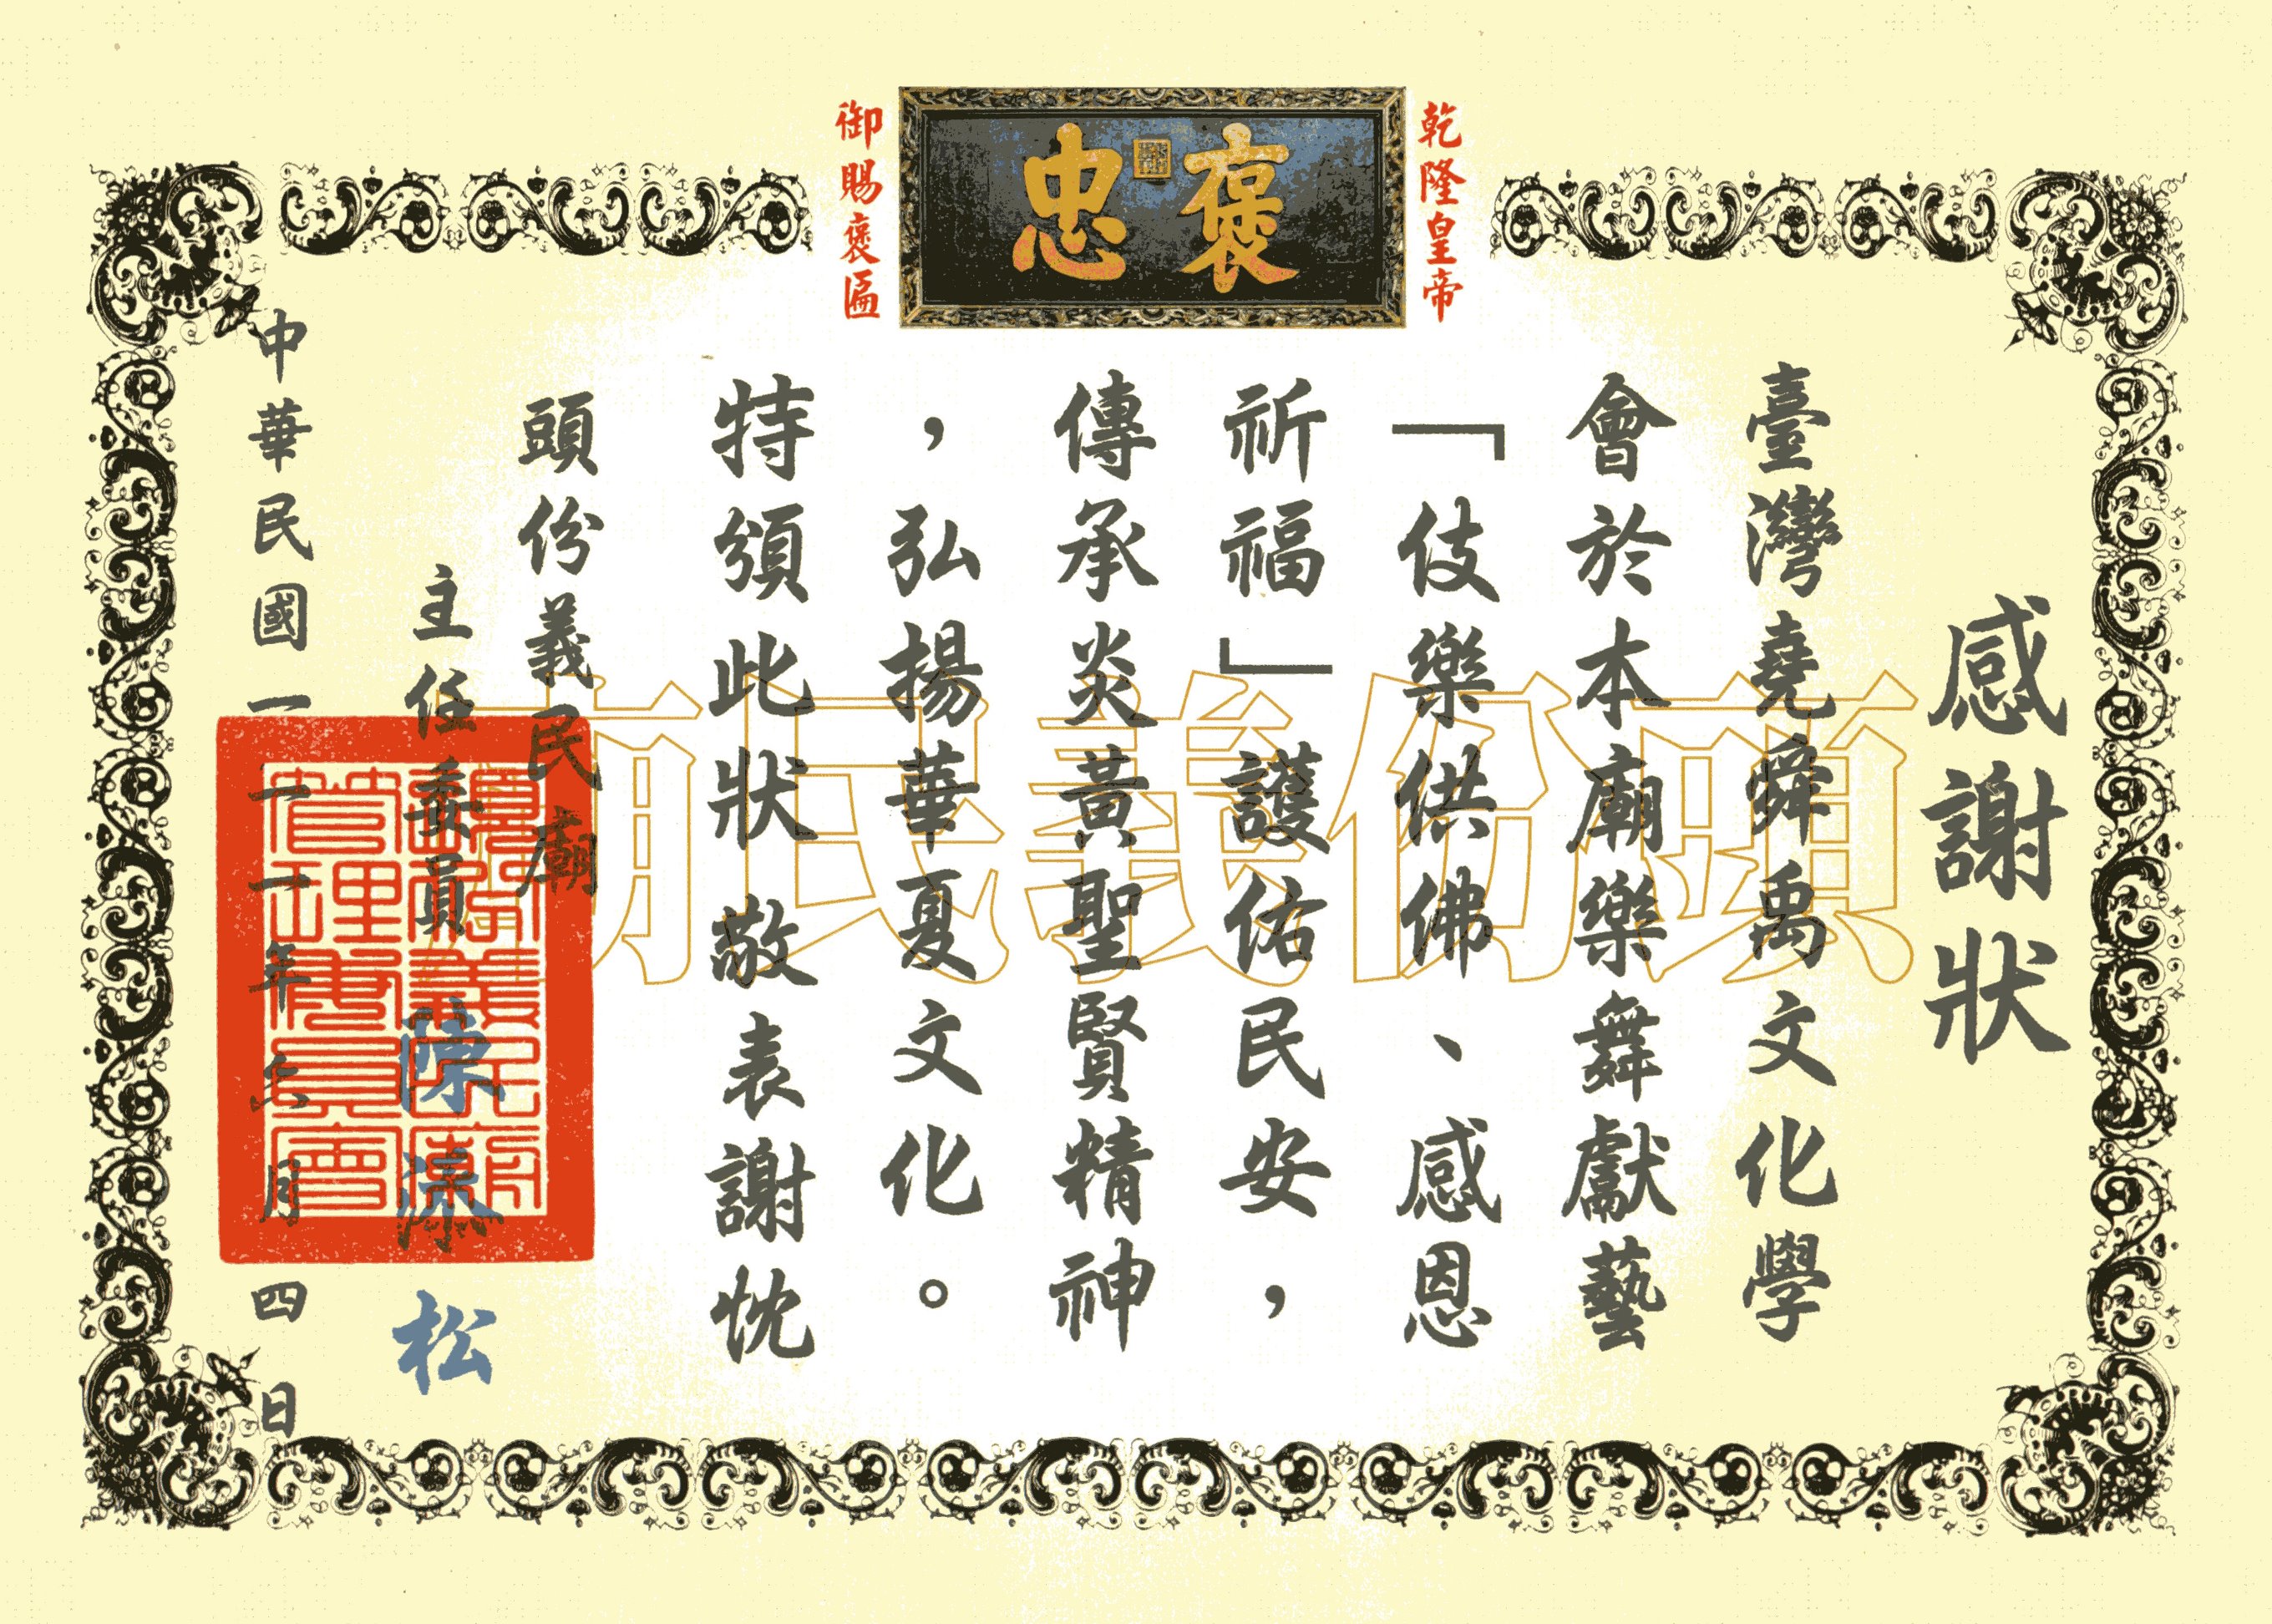 乾隆皇帝
褒忠
御賜褒匾
感謝狀
臺灣堯舜禹文化學
會於本廟樂舞獻藝
「伎樂供佛、感恩
祈福」護佑民安，
傳承炎黃聖賢精神
，弘揚華夏文化。
特頒此狀 敬表謝忱
頭份義民廟
主任委員 陳 松
中華民國一一一年六月四日
頭份義民廟
頭份義民廟
管理委員會